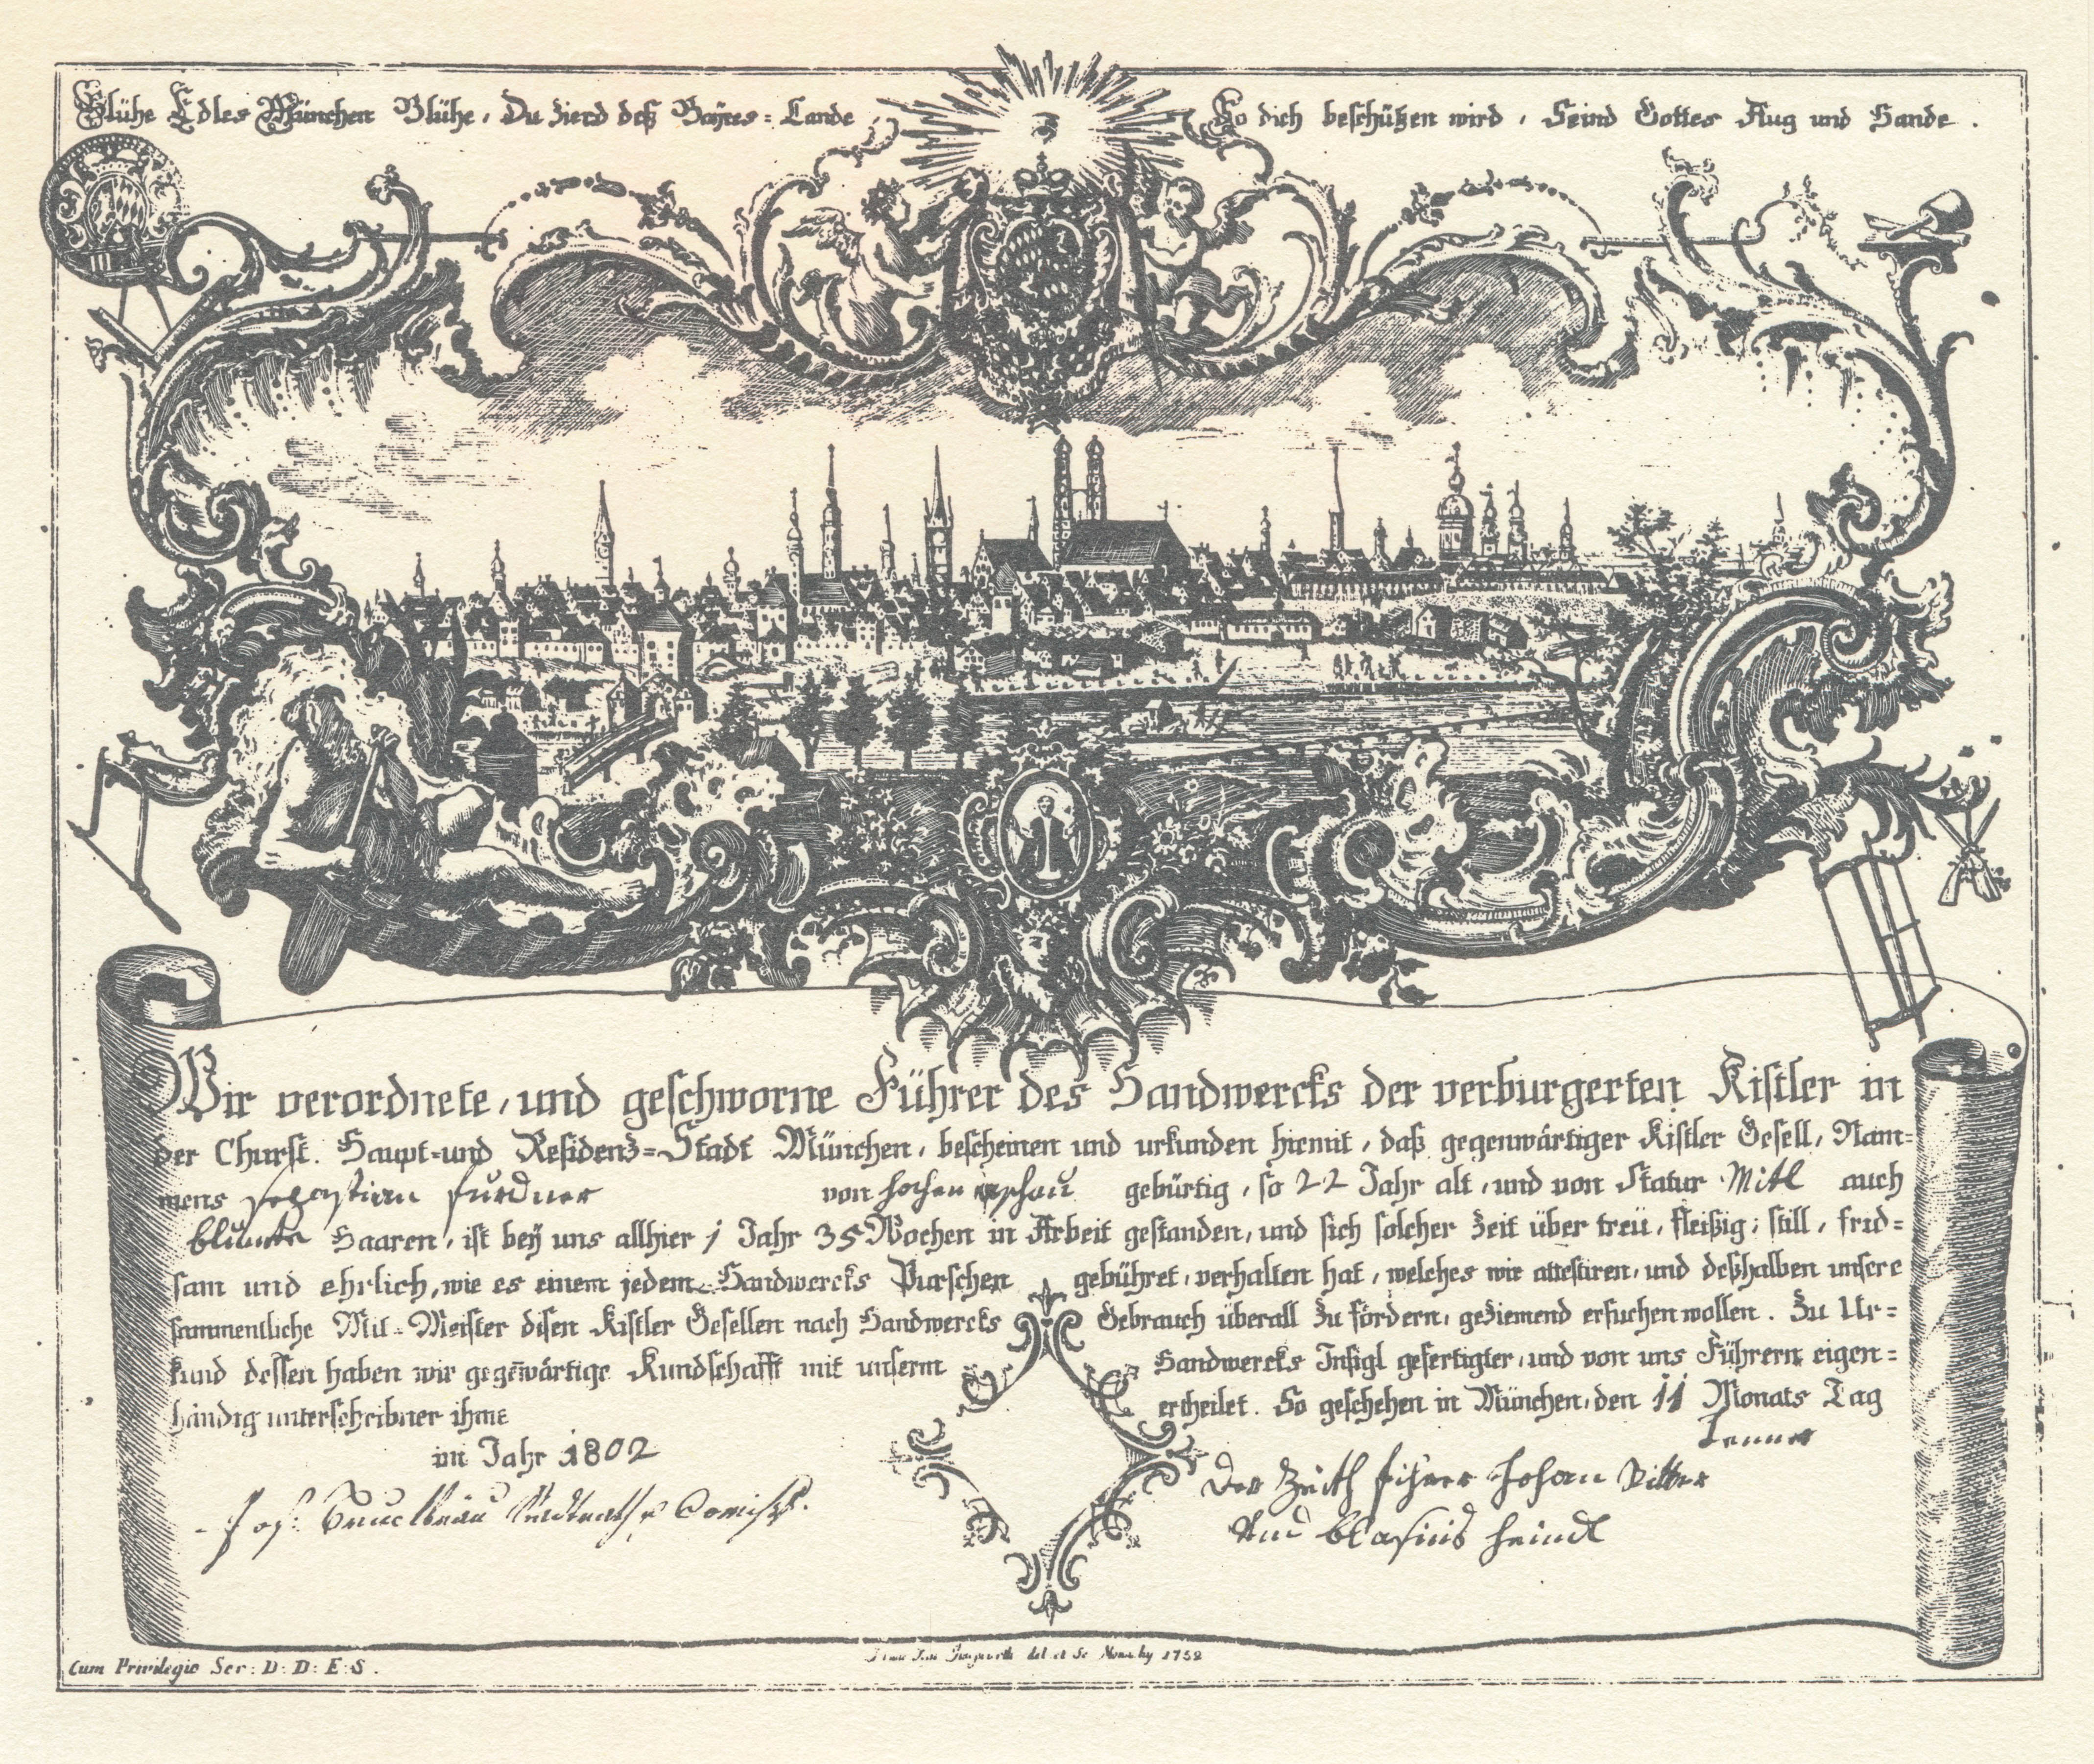 Blühe Edles München Blühe, Du Zierd deß Bayres-Lande
So dich beschützen wird, Seind Gottes Aug und Hande.
Wir verordnete, und geschworne Führer des Handwercks der verburgerten Kistler in
der Churft. Haupt-und Residenz-Stadt München, bescheinen und urkunden hiemit, daß gegenwärtiger Kistler Gesell, Nam=
mens furdner von gebürtig, so 22 Jahr alt, und von Statur Mitl auch
Haaren, ist bey uns allhier 1 Jahr 35 Wochen in Arbeit gestanden, und sich solcher Zeit über treü, fleißig, still, frid=
sam und ehrlich, wie es einem jedem Handwercks Purschen gebühret, verhalten hat, welches wir attestiren, und deßhalben unsere
sammentliche Mit-Meister disen Kistler Gesellen nach Handwercks Gebrauch überall zu fördern, geziemend ersuchen wollen. Zu Ur=
kund dessen haben wir gegēwärtige Kundschafft mit unserm Handwercks Insigl gefertigter, und von uns Führern eigen=
händig unterschribner ihme ertheilet. So geschehen in München, den 11 Monats Tag
im Jahr 1802
Der führer Johan
Und blasius heindl
Cum Privilegio Ser: D: D: E: S.
del et Sc 1752